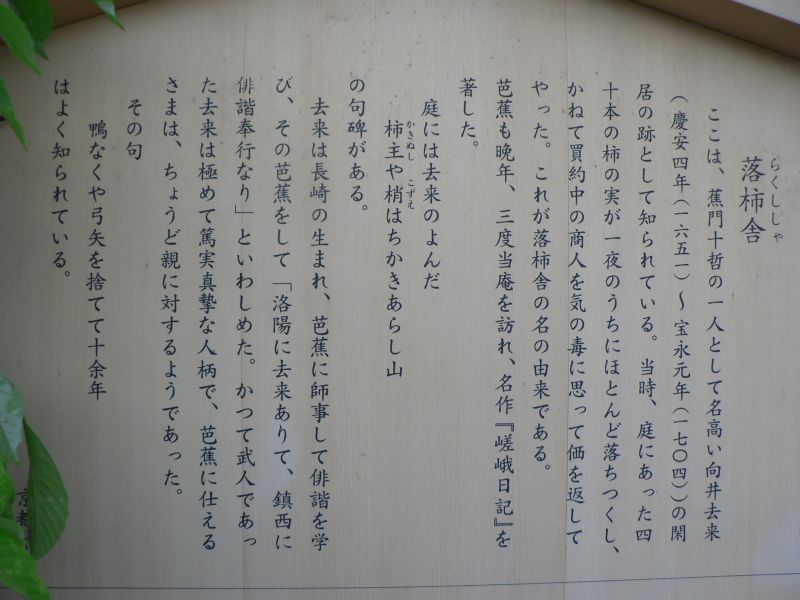 落柿舎
らくししゃ
ここは、蕉門十哲の一人として名高い向井去来
（慶安四年（一六五一）～宝永元年（一七〇四））の閑
居の跡として知られている。当時、庭にあった四
十本の柿の実が一夜のうちにほとんど落ちつくし、
かねて買約中の商人を気の毒に思って価を返して
やった。これが落柿舎の名の由来である。
芭蕉も晩年、三度当庵を訪れ、名作『嵯峨日記』を
著した。
庭には去来のよんだ
柿主や梢はちかきあらし山
かきぬし こずえ
の句碑がある。
去来は長崎の生まれ、芭蕉に師事して俳諧を学
び、その芭蕉をして「洛陽に去来ありて、鎮西に
俳諧奉行なり」といわしめた。かつて武人であっ
た去来は極めて篤実真摯な人柄で、芭蕉に仕える
さまは、ちょうど親に対するようであった。
その句
鴨なくや弓矢を捨てて十余年
はよく知られている。
京都